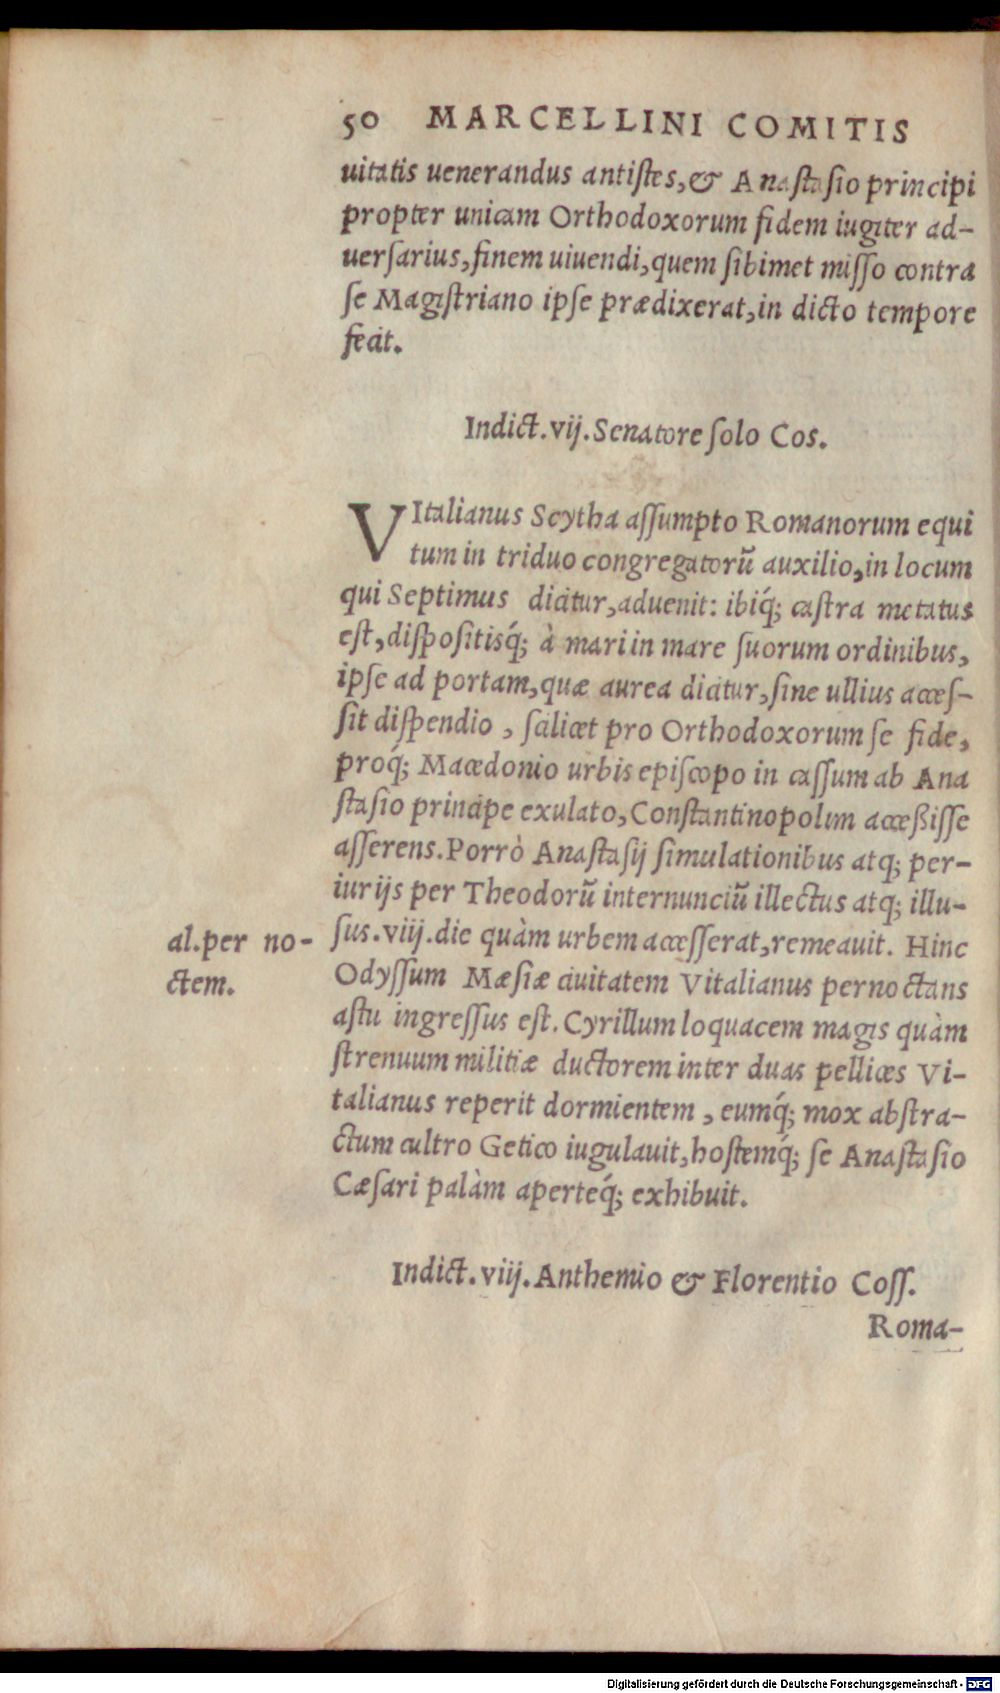 50 MARCELLINI COMITIS
uitatis uenerandus antistes,& Anastasio principi
propter unicam Orthodoxorum fidem iugiter ad-
uersarius,finem uiuendi,quem sibimet misso contra
se Magistriano ipse prædixerat,in dicto tempore
fecit.
Indict.vij.Senatore solo Cos.
VItalianus Scytha assumpto Romanorum equi
tum in triduo congregatorũ auxilio,in locum
qui Septimus dicitur,aduenit: ibiq́; castra metatus
est,dispositisq́; à mari in mare suorum ordinibus,
ipse ad portam,quæ aurea dicitur,sine ullius acces-
sit dispendio , scilicet pro Orthodoxorum se fide,
proq́; Macedonio urbis episcopo in cassum ab Ana
stasio principe exulato,Constantinopolim acceßisse
asserens.Porrò Anastasij simulationibus atq; per-
iurijs per Theodorũ internunciũ illectus atq; illu-
sus.viij.die quàm urbem accesserat,remeauit. Hinc
al.per no-
ctem.
Odyssum Mæsiæ ciuitatem Vitalianus pernoctans
astu ingressus est.Cyrillum loquacem magis quàm
strenuum militiæ ductorem inter duas pellices Vi-
talianus reperit dormientem , eumq́; mox abstra-
ctum cultro Getico iugulauit,hostemq́; se Anastasio
Cæsari palàm aperteq́; exhibuit.
Indict.viij.Anthemio & Florentio Coss.
Roma-
Digitalisierung gefördert durch die Deutsche Forschungsgemeinschaft - DFG